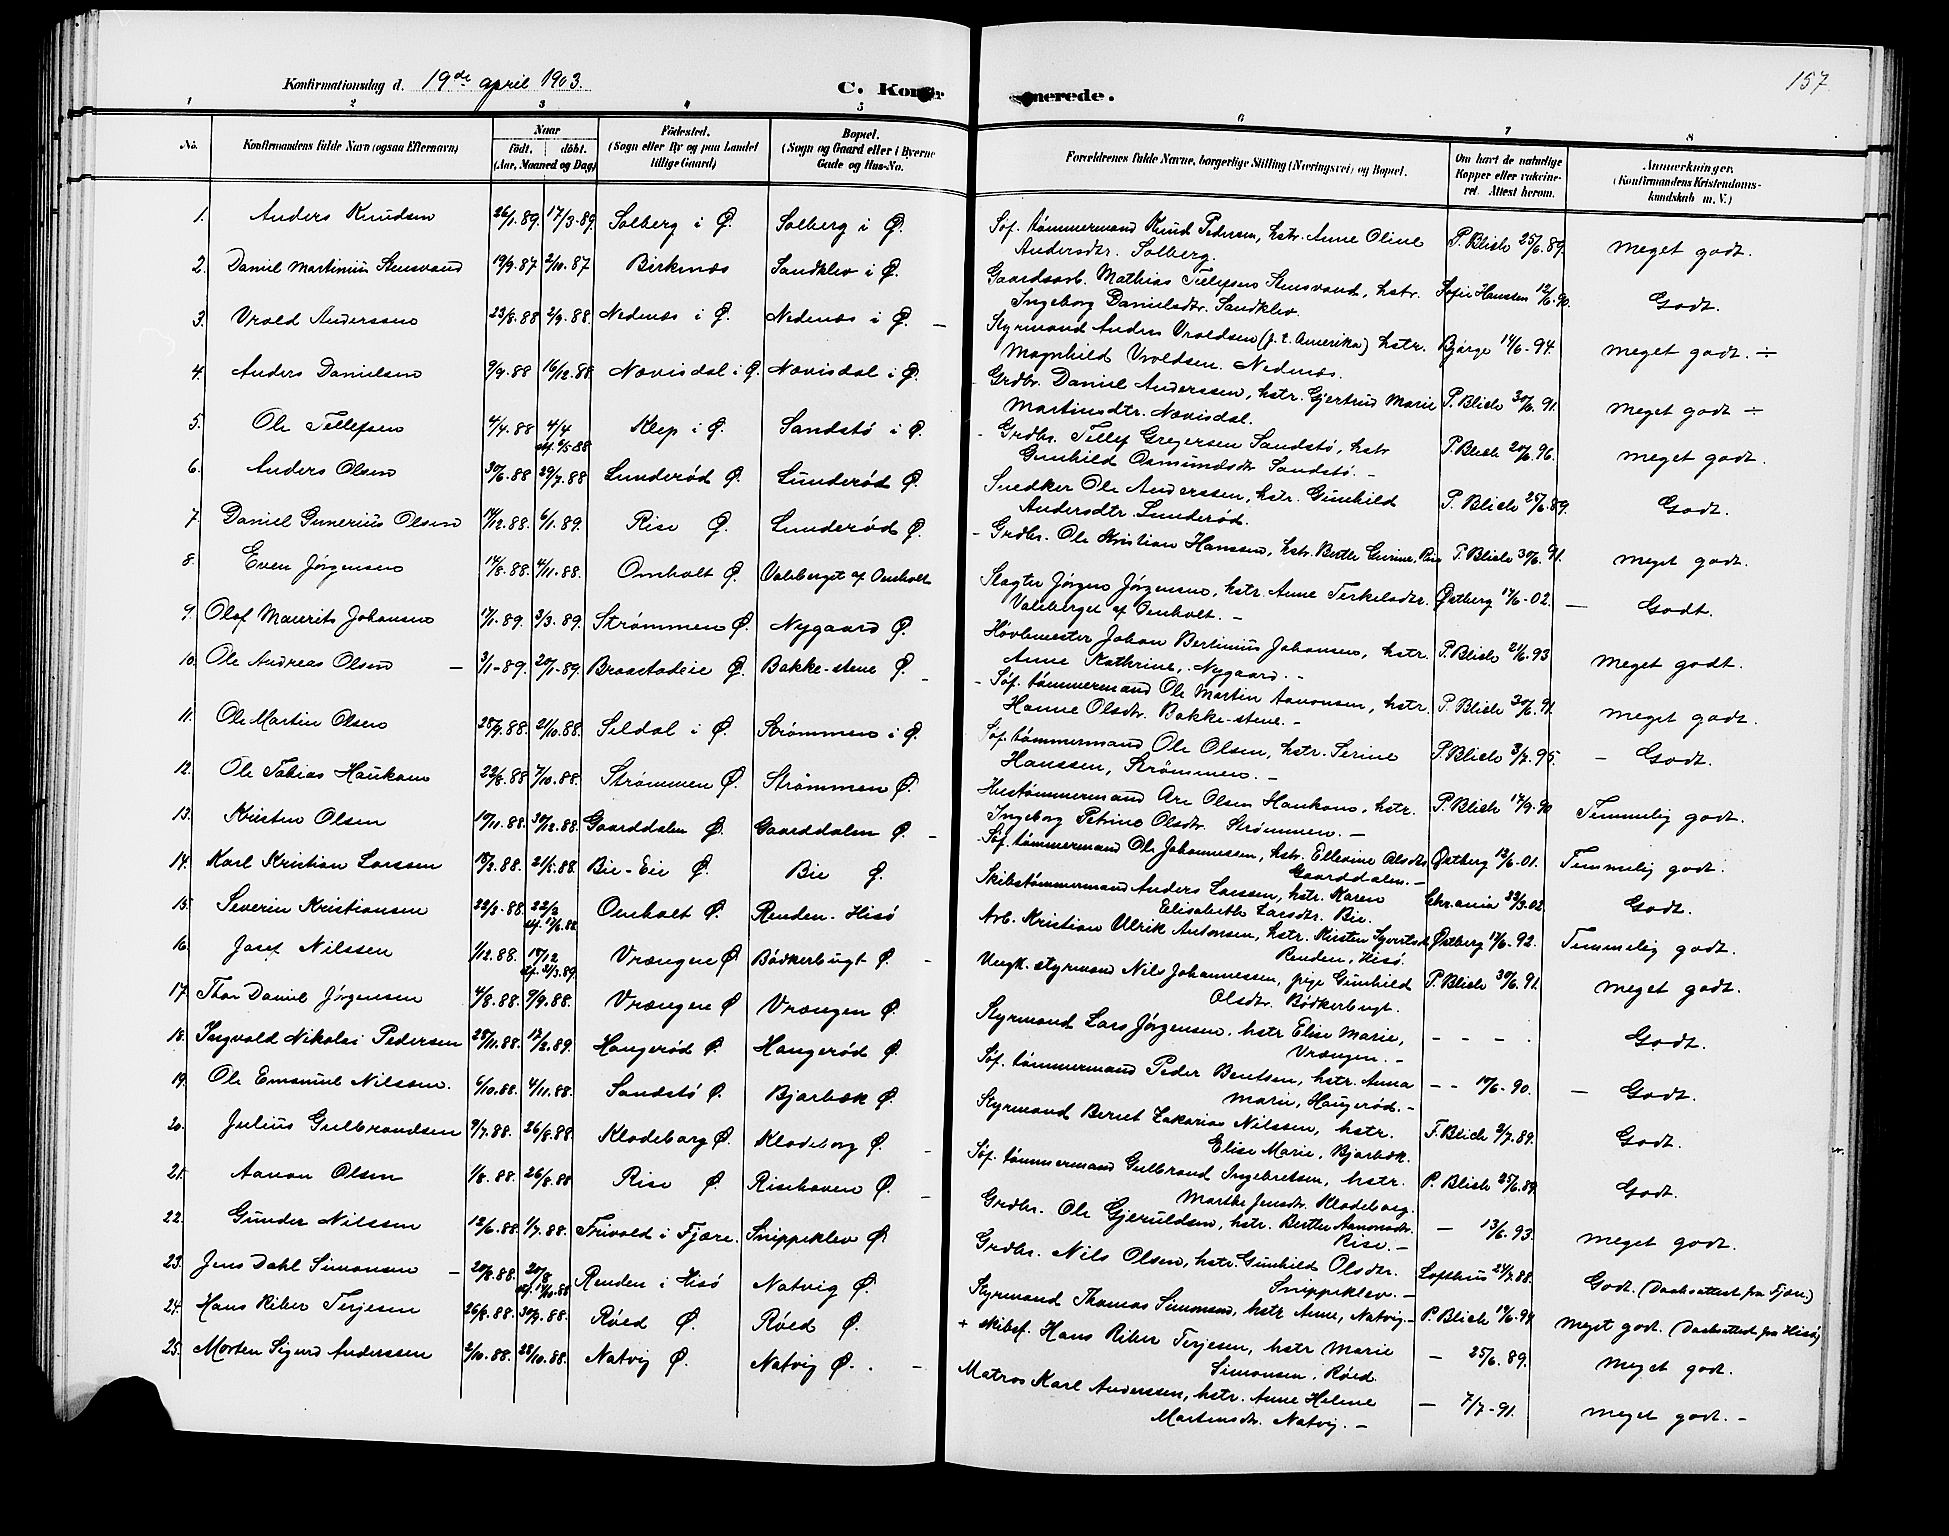 Konfirmationsdag d. 19de april 1903.
C. Konfir
merede.
157
1 2 3 4 5 6 7 8
No.
Konfirmandens fulde Navn (ogsaa Efternavn)
Naar
født. døbt.
(Aar, Maaned og Dag)
Fødested.
(Sogn eller By og paa Landet
tillige Gaard)
Bopæl.
(Sogn og Gaard eller i Byerne
Gade og Hus-No.
Forældrenes fulde Navne, borgerlige Stilling (Næringsvei) og Bopæl.
Om havt de naturlige
Kopper eller vakcine-
ret. Attest herom.
Anmerkninger.
(Konfirmandens Kristendoms-
kundskab m. V.)
1. Anders Knudsen 26/1.89. 17/3.89. Solberg i Ø. Solberg i Ø. Søf. tømmermand Knud Pedersen, hstr. Anne Oline P. Blich 25/6.89. meget godt.
Andersdtr. Solberg.
2. Daniel Martinius Stensvand 19/9.87 2/10.87 Birkenæs Sandklev i Ø. Gaardsarb. Mathias Tellefsen Stensvand, hstr. Sofie Hansten 12/6.90. Godt.
Ingeborg Danielsdtr. Sandklev.
3. Vrold Anderssen 23/8.88 2/9.88. Nedenæs i Ø. Nedenæs i Ø. – Styrmand Anders Vroldsen (f. t. Amerika) hstr. Bjørge 14/6-94. meget godt. ÷
Magnhild Vroldsen. Nedenæs.
4. Anders Danielsen 9/9.88 16/12.88. Nævisdal i Ø. Nævisdal i Ø. Grdbr. Daniel Anderssen, hstr. Gjertrud Marie P. Blich 30/6.91. meget godt ÷
Martinsdtr. Nævisdal.
5. Ole Tellefsen 4/4.88 4/4 Klep i Ø. Sandstø i Ø. Grdbr. Tellef Gregersen Sandstø, hstr P. Blich 20/6.96. meget godt.
Gunhild Osmundsdtr Sandstø. –
6. Anders Olsen 30/6.88 29/7.88 Lunderød Ø. Lunderød Ø. Snedker Ole Anderssen, hstr. Gunhild P. Blich 25/6.89. Godt.
Andersdtr. Lunderød.
7. Daniel Gunerius Olsen 14/12.88. 6/1.89. Rise Ø. Lunderød Ø. – Grdbr. Ole Kristian Hanssen, hstr. Berthe Gurine, Rise P. Blich 30/6.91. meget godt.
8. Even Jørgensen 14/8.88. 4/11.88. Omholt Ø. Valeberget af Omholt Slagter Jørgen Jørgensen, hstr. Anne Terkelsdtr. Østberg 17/6-02. – Godt.
Valeberget af Omholt. –
9. Olaf Maurits Johansen 17/1.89. 3/3.89. Strømmen Ø. Nygaard Ø. Høvlemester Johan Bertinius Johansen, hstr. P. Blich 21/6.93 meget godt.
Anne Kathrine, Nygaard. –
10. Ole Andreas Olsen – 3/1-89. 20/1.89. Braastadeie Ø. Bakke-stene Ø. – Søf. tømmermand Ole Martin Aanonsen, hstr. P. Blich 30/6.91. meget godt.
Hanne Olsdtr. Bakke-stene. –
11. Ole Martin Olsen 28/9.88. 21/10.88. Seldal i Ø. Strømmen i Ø. Søf. tømmermand Ole Olsen, hstr. Serine P. Blich 3/7.95. – Godt.
Hanssen, Strømmen. –
12. Ole Tobias Haukom 22/8.88 7/10.88. Strømmen Ø. Strømmen Ø. Hustømmermand Are Olsen Haukom, hstr. P. Blich 17/9.90 Temmelig godt.
Ingeborg Petrine Olsdtr. Strømmen. –
13. Kristen Olsen 10/11.88. 30/12.88. Gaarddalen Ø. Gaarddalen Ø. – Søf. tømmermand Ole Johannessen, hstr. Ellevine Olsdtr Østberg 12/6-01. Temmelig godt.
Gaarddalen. –
14. Karl Kristian Larssen 18/3.88. 21/5.88. Bie-Eie Ø. Bie Ø. Skibstømmermand Anders Larssen, hstr. Karen Chr.ania 22/3.02. Godt.
Elisabeth Larsdtr. Bie.
15. Severin Kristiansen 22/3-88. 22/3 Omholt Ø. Renden-Hisø Arb. Kristian Ulrik Antonsen, hstr. Kirsten Syvertsd. Østberg 17/6-92. Temmelig godt.
Renden, Hisø
16. Josef Nilssen 1/12.88. 18/12 Vrængen Ø Bødkerbugt Ø. – Ungk. styrmand Nils Johannessen, pige Gunhild P. Blich 30/6.91. meget godt.
Olsdtr. Bødkerbugt.
17. Thor Daniel Jørgensen 4/8.88. 9/9.88. Vrængen Ø Vrængen Ø. Styrmand Lars Jørgensen, hstr Elise Marie, – – – – Godt.
Vrængen. –
18. Ingvald Nikolai Pedersen 28/11.88. 17/2.89. Haugerød Ø. Haugerød Ø. Søf. tømmermand Peder Bentsen, hstr. Anna – – 17/6-90. – Godt.
Marie, Haugerød. –
19. Ole Emanuel Nilssen. 6/10.88. 4/11.88. Sandstø Ø. Bjorbæk Ø. Styrmand Bernt Zakarias Nilssen, hstr. P. Blich 2/7.89. Godt.
Elise Marie, Bjorbæk.
20. Julius Gulbrandsen 9/7.88. 26/8.88. Klodeborg Ø. Klodeborg Ø. – Søf. tømmermand Gulbrand Ingebretsen, hstr. P. Blich 25/6.89. Godt.
Marthe Jensdtr. Klodeborg.
21. Aanon Olsen 1/8.88. 26/8.88 Rise Ø. Risehaven Ø. – Grdbr. Ole Gjeruldsen, hstr. Berthe Aanonsdtr. – 13/6.93. meget godt.
Rise. –
22. Gunder Nilssen 12/6.88. 1/7.88. Frivold i Fjære. Snippeklev Ø. Grdbr. Nils Olsen, hstr. Gunhild Olsdtr. Lofthus 24/7.88. Godt. (Daabsattest fra Fjære.)
Snippeklev. –
23. Jens Dahl Simonsen – 20/8.88. 20/8 Renden i Hisø Natvig Ø. Styrmand Thomas Simonsen, hstr Anne, Natvig – P. Blich 19/6.94 meget godt. (Daabsattest fra Hisø)
24. Hans Riber Terjesen 26/8.88. 30/9.88. Røed Ø. Røed Ø. + skibsf. Hans Riber Terjesen, hstr Marie – 25/6.89. meget godt.
Simonsen, Røed.
25. Morten Sigurd Anderssen 2/10.88. 28/10.88. Natvig Ø. Natvig Ø. – Matros Karl Anderssen, hstr. Anne Helene – 7/7-91. meget godt. –
Mortensdtr. Natvig. –